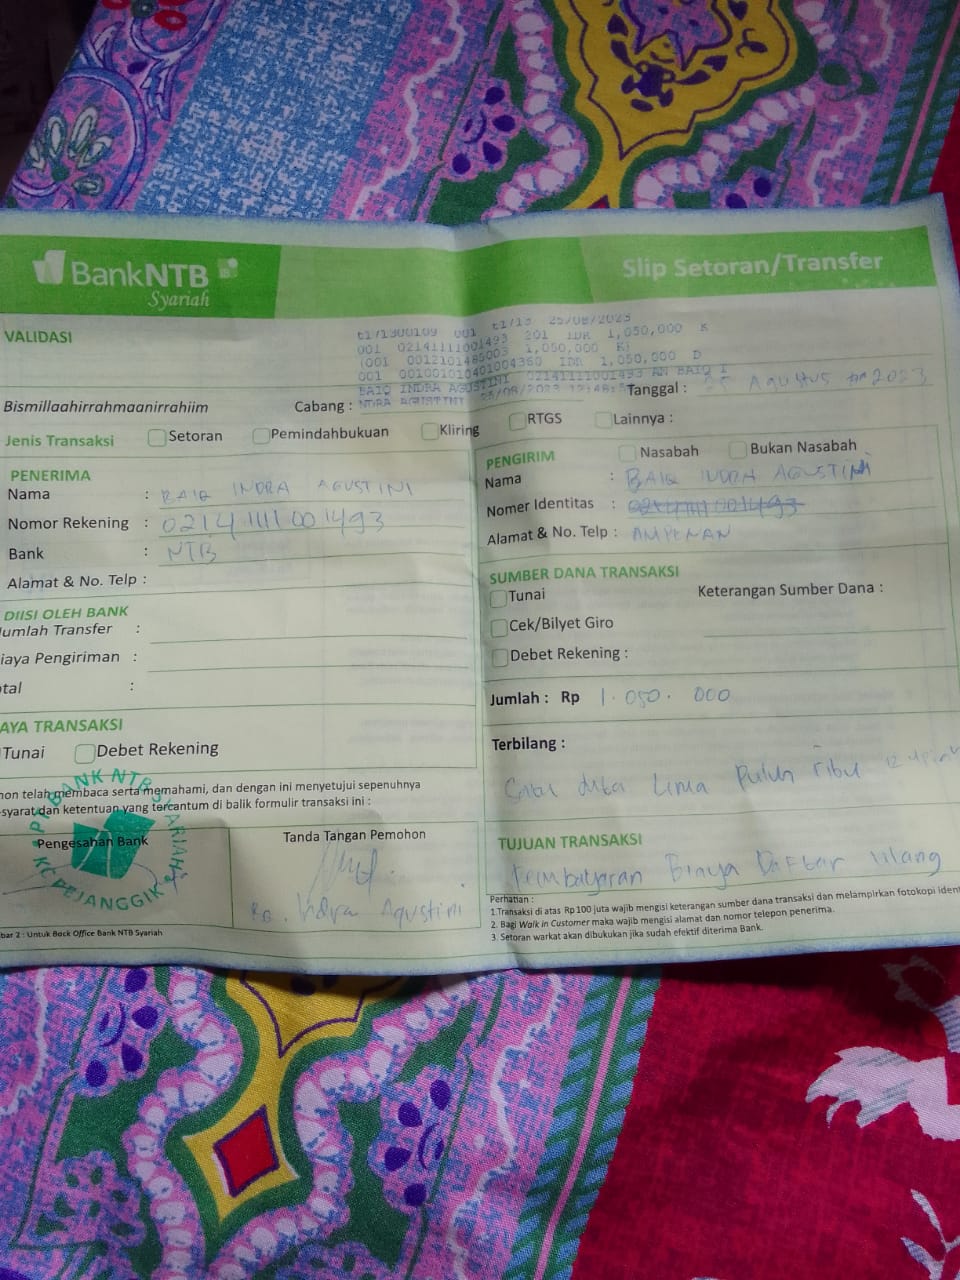 BankNTB
Syariah
Slip Setoran/Transfer
VALIDASI
t1/1300109 001 t1/13 25/08/2023
001 02141111001493 201 IDR 1,050,000 K
(001 0012101485003 1,050,000 K)
001 001001010401004360 IDR 1,050,000 D
BAIQ INDRA AGUSTINI 02141111001493 AN BAIQ I
NDRA AGUSTINI 25/08/2023
Tanggal : 25 Agustus 2023
Bismillaahirrahmaanirrahiim
Cabang :
Jenis Transaksi
Setoran
Pemindahbukuan
Kliring
RTGS
Lainnya :
PENERIMA
Nama : BAIQ INDRA AGUSTINI
Nomor Rekening : 02141111001493
Bank : NTB
Alamat & No. Telp :
DIISI OLEH BANK
umlah Transfer :
iaya Pengiriman :
tal :
AYA TRANSAKSI
Tunai
Debet Rekening
hon telah membaca serta memahami, dan dengan ini menyetujui sepenuhnya
syarat dan ketentuan yang tercantum di balik formulir transaksi ini :
Pengesahan Bank
BANK NTB SYARIAH
KC PEJANGGIK
Tanda Tangan Pemohon
Bq. Indra Agustini
bar 2 : Untuk Back Office Bank NTB Syariah
PENGIRIM
Nasabah
Bukan Nasabah
Nama : BAIQ INDRA AGUSTINI
Nomer Identitas : 02141111001493
Alamat & No. Telp : AMPENAN
SUMBER DANA TRANSAKSI
Tunai
Keterangan Sumber Dana :
Cek/Bilyet Giro
Debet Rekening :
Jumlah : Rp 1.050.000
Terbilang :
Lima Puluh ribu
TUJUAN TRANSAKSI
Pembayaran Biaya Daftar Ulang
Perhatian :
1.Transaksi di atas Rp 100 juta wajib mengisi keterangan sumber dana transaksi dan melampirkan fotokopi ident
2. Bagi Walk in Customer maka wajib mengisi alamat dan nomor telepon penerima.
3. Setoran warkat akan dibukukan jika sudah efektif diterima Bank.